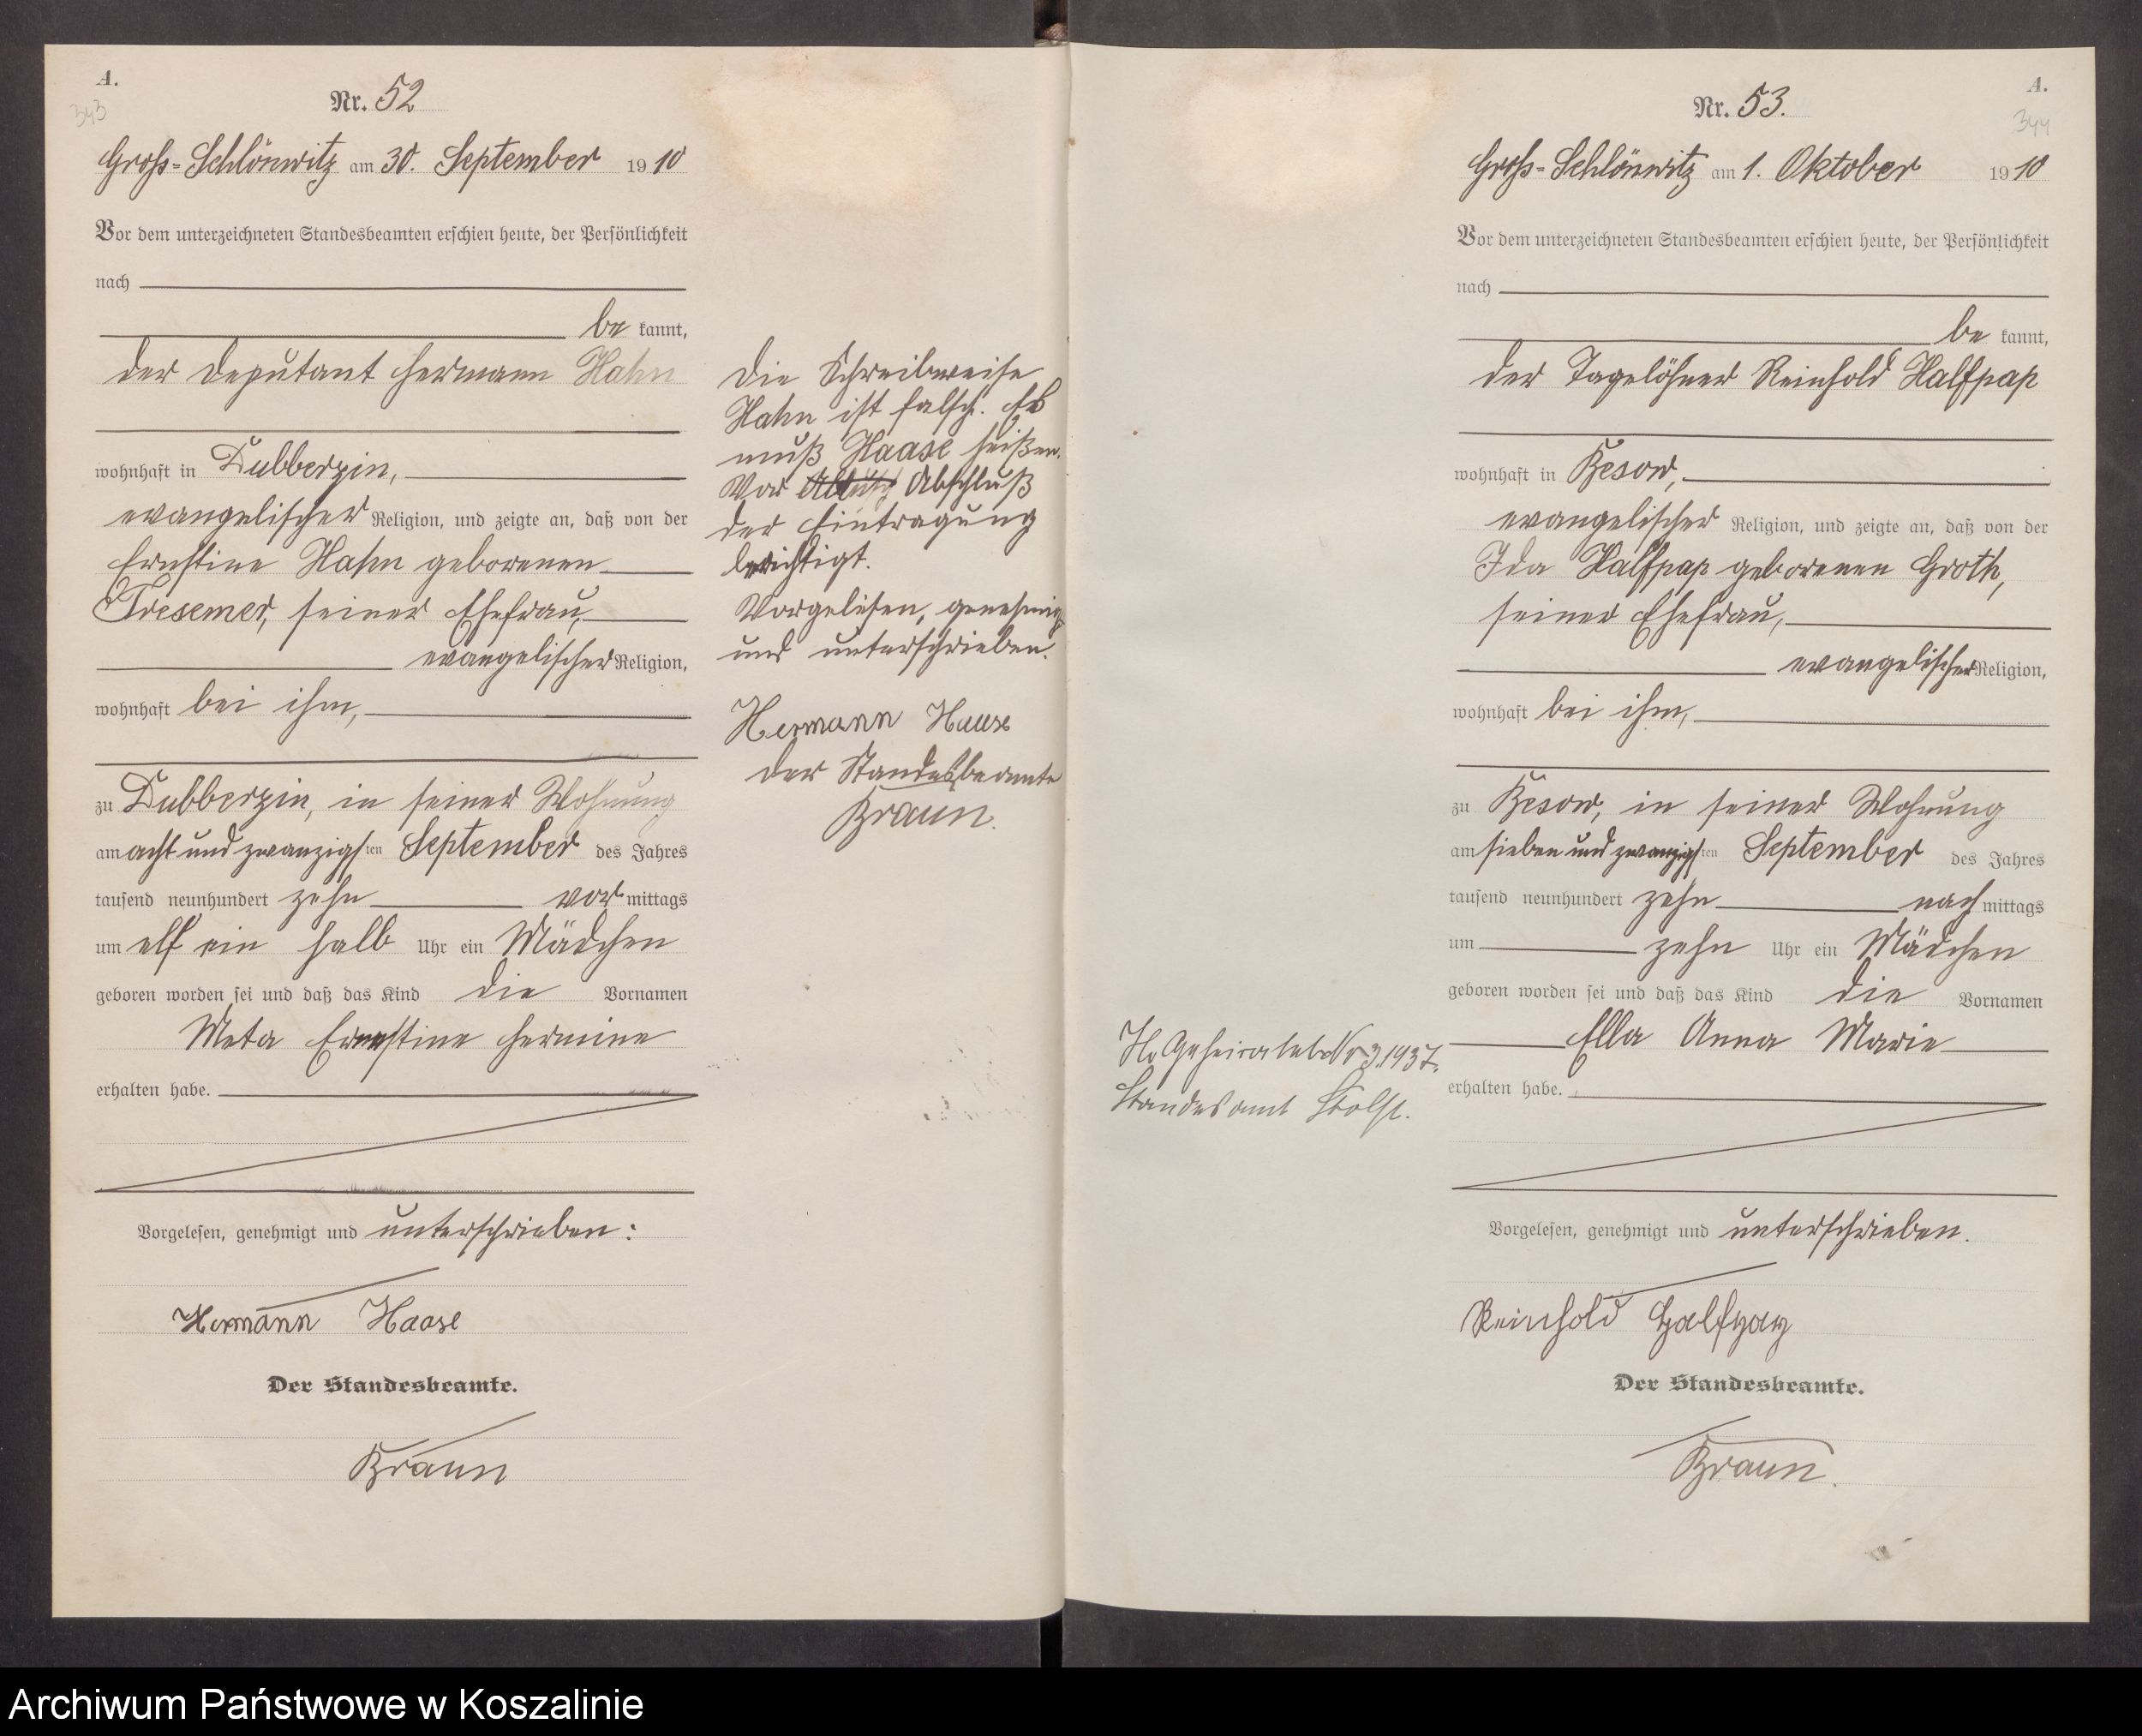 A.
343
Nr. 52
Groß-Schlönwitz am 30. September 1910
Vor dem unterzeichneten Standesbeamten erschien heute, der Persönlichkeit
nach
be kannt,
der Deputant Hermann Hahn
wohnhaft in Dubberzin,
evangelischer Religion, und zeigte an, daß von der
Ernstine Hahn geborenen
Tresemer, seiner Ehefrau,
evangelischer Religion,
wohnhaft bei ihm,
zu Dubberzin, in seiner Wohnung
am acht und zwanzigsten September des Jahres
tausend neunhundert zehn vormittags
um elf ein halb Uhr ein Mädchen
geboren worden sei und daß das Kind die Vornamen
Meta Ernestine Hermine
erhalten habe.
Vorgelesen, genehmigt und unterschrieben:
Hermann Haase
Der Standesbeamte.
Braun
Die Schreibweise
Hahn ist falsch. Es
muß Haase heißen.
Vor Abschluß
der Eintragung
berichtigt.
Vorgelesen, genehmigt
und unterschrieben.
Hermann Haase
Der Standesbeamte
Braun.
A.
344
Nr. 53.
Groß-Schlönwitz am 1. Oktober 1910
Vor dem unterzeichneten Standesbeamten erschien heute, der Persönlichkeit
nach
be kannt,
der Tagelöhner Reinhold Halfpap
wohnhaft in Besow,
evangelischer Religion, und zeigte an, daß von der
Ida Halfpap geborenen Groth,
seiner Ehefrau,
evangelischer Religion,
wohnhaft bei ihm,
zu Besow, in seiner Wohnung
am sieben und zwanzigsten September des Jahres
tausend neunhundert zehn nachmittags
um zehn Uhr ein Mädchen
geboren worden sei und daß das Kind die Vornamen
Ella Anna Marie
erhalten habe.
Vorgelesen, genehmigt und unterschrieben.
Reinhold Halfpap
Der Standesbeamte.
Braun.
Nr 3.1937.
Standesamt Stolp.
Archiwum Państwowe w Koszalinie